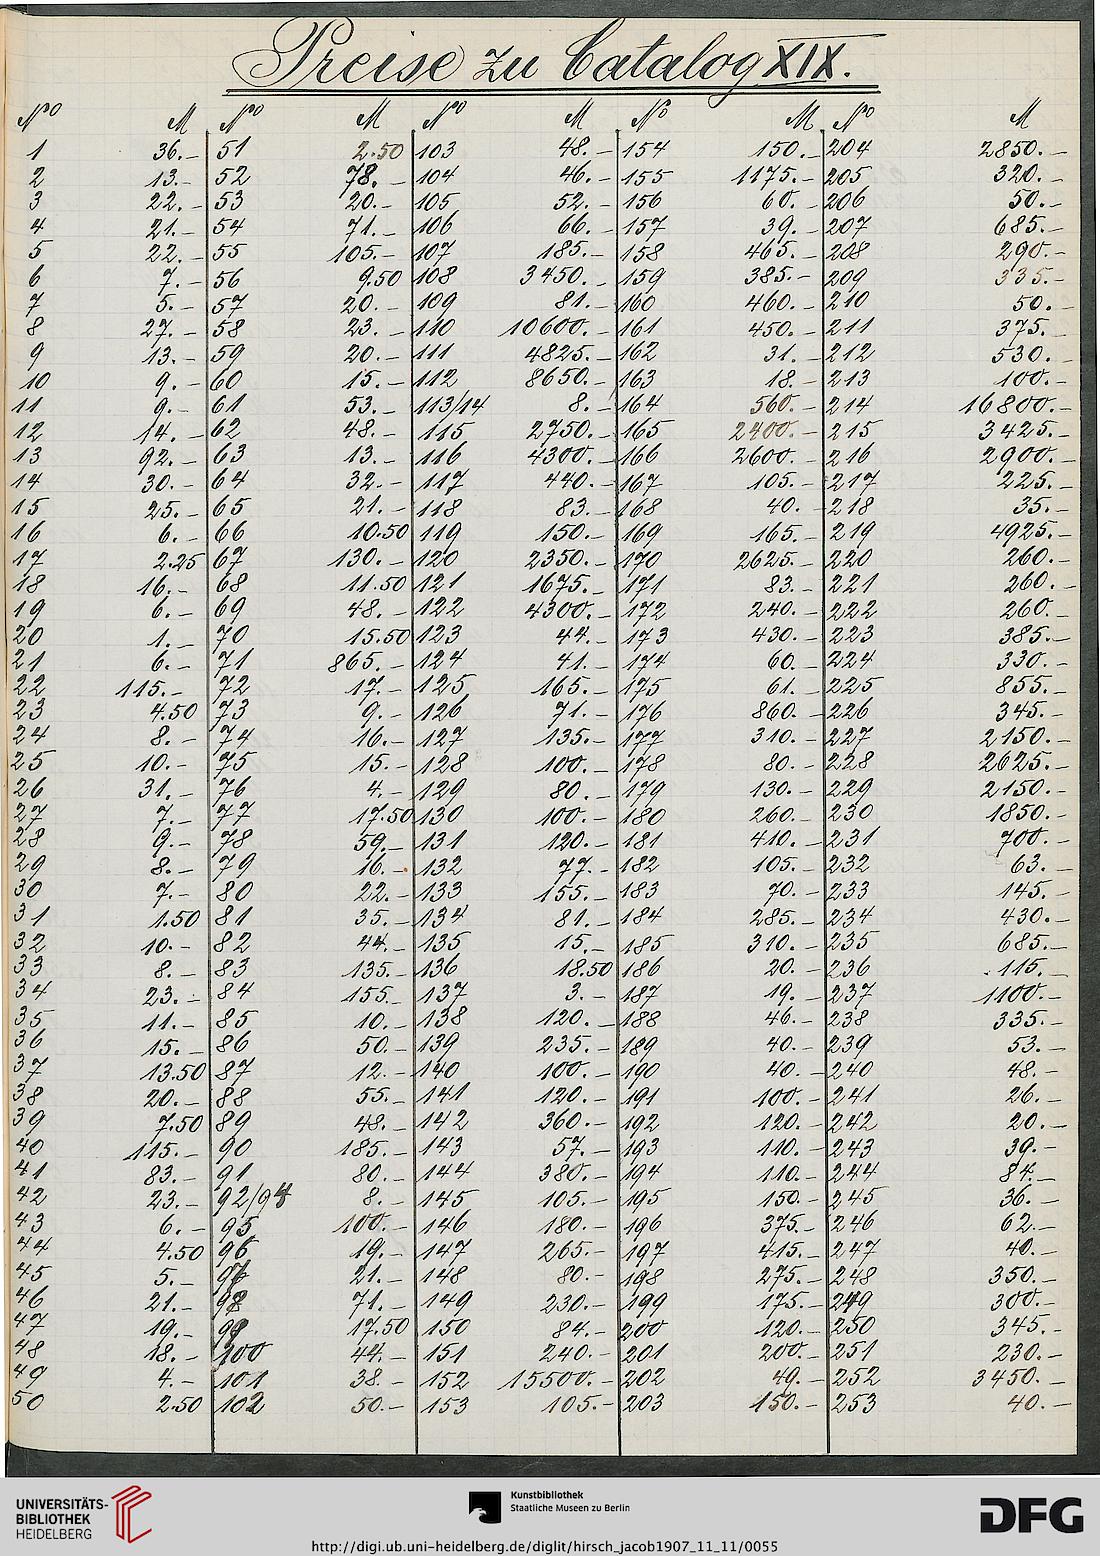 Preise zu Catalog XIX.
No M No M No M No M No M
1 36.- 51 2.50 103 48.- 154 150.- 204 2850.-
2 13.- 52 78.- 104 46.- 155 1175.- 205 320.-
3 22.- 53 20.- 105 52.- 156 60.- 206 50.-
4 21.- 54 71.- 106 66.- 157 39.- 207 685.-
5 22.- 55 105.- 107 185.- 158 465.- 208 290.-
6 7.- 56 9.50 108 3450.- 159 385.- 209 335.-
7 5.- 57 20.- 109 81.- 160 460.- 210 50.-
8 27.- 58 23.- 110 10600.- 161 450.- 211 375.-
9 13.- 59 20.- 111 4825.- 162 31.- 212 530.-
10 9.- 60 15.- 112 8650.- 163 18.- 213 100.-
11 9.- 61 53.- 113/14 8.- 164 560.- 214 16800.-
12 14.- 62 48.- 115 2750.- 165 2400.- 215 3425.-
13 92.- 63 13.- 116 4300.- 166 2600.- 216 2900.-
14 30.- 64 32.- 117 440.- 167 105.- 217 225.-
15 25.- 65 21.- 118 83.- 168 40.- 218 35.-
16 6.- 66 10.50 119 150.- 169 165.- 219 4925.-
17 2.25 67 130.- 120 2350.- 170 2625.- 220 260.-
18 16.- 68 11.50 121 1675.- 171 83.- 221 260.-
19 6.- 69 48.- 122 4300.- 172 240.- 222 260.-
20 1.- 70 15.50 123 44.- 173 430.- 223 385.-
21 6.- 71 865.- 124 41.- 174 60.- 224 330.-
22 115.- 72 17.- 125 165.- 175 61.- 225 855.-
23 4.50 73 9.- 126 71.- 176 860.- 226 345.-
24 8.- 74 16.- 127 135.- 177 310.- 227 2150.-
25 10.- 75 15.- 128 100.- 178 80.- 228 2625.-
26 31.- 76 4.- 129 80.- 179 130.- 229 2150.-
27 7.- 77 17.50 130 100.- 180 260.- 230 1850.-
28 9.- 78 59.- 131 120.- 181 410.- 231 700.-
29 8.- 79 16.- 132 77.- 182 105.- 232 63.-
30 7.- 80 22.- 133 155.- 183 70.- 233 145.-
31 1.50 81 35.- 134 81.- 184 285.- 234 430.-
32 10.- 82 44.- 135 15.- 185 310.- 235 685.-
33 8.- 83 135.- 136 18.50 186 20.- 236 115.-
34 23.- 84 155.- 137 3.- 187 19.- 237 1100.-
35 11.- 85 10.- 138 120.- 188 46.- 238 335.-
36 15.- 86 50.- 139 235.- 189 40.- 239 53.-
37 13.50 87 12.- 140 100.- 190 40.- 240 48.-
38 20.- 88 55.- 141 120.- 191 100.- 241 26.-
39 7.50 89 48.- 142 360.- 192 120.- 242 20.-
40 115.- 90 185.- 143 57.- 193 110.- 243 39.-
41 83.- 91 80.- 144 380.- 194 110.- 244 84.-
42 23.- 92/94 8.- 145 105.- 195 150.- 245 36.-
43 6.- 95 100.- 146 180.- 196 375.- 246 62.-
44 4.50 96 19.- 147 265.- 197 415.- 247 40.-
45 5.- 97 21.- 148 80.- 198 275.- 248 350.-
46 21.- 98 71.- 149 230.- 199 175.- 249 300.-
47 19.- 99 17.50 150 84.- 200 120.- 250 345.-
48 18.- 100 44.- 151 240.- 201 200.- 251 230.-
49 4.- 101 38.- 152 15500.- 202 49.- 252 3450.-
50 2.50 102 50.- 153 105.- 203 150.- 253 40.-
UNIVERSITÄTS-
BIBLIOTHEK
HEIDELBERG
Kunstbibliothek
Staatliche Museen zu Berlin
DFG
http://digi.ub.uni-heidelberg.de/diglit/hirsch_jacob1907_11_11/0055